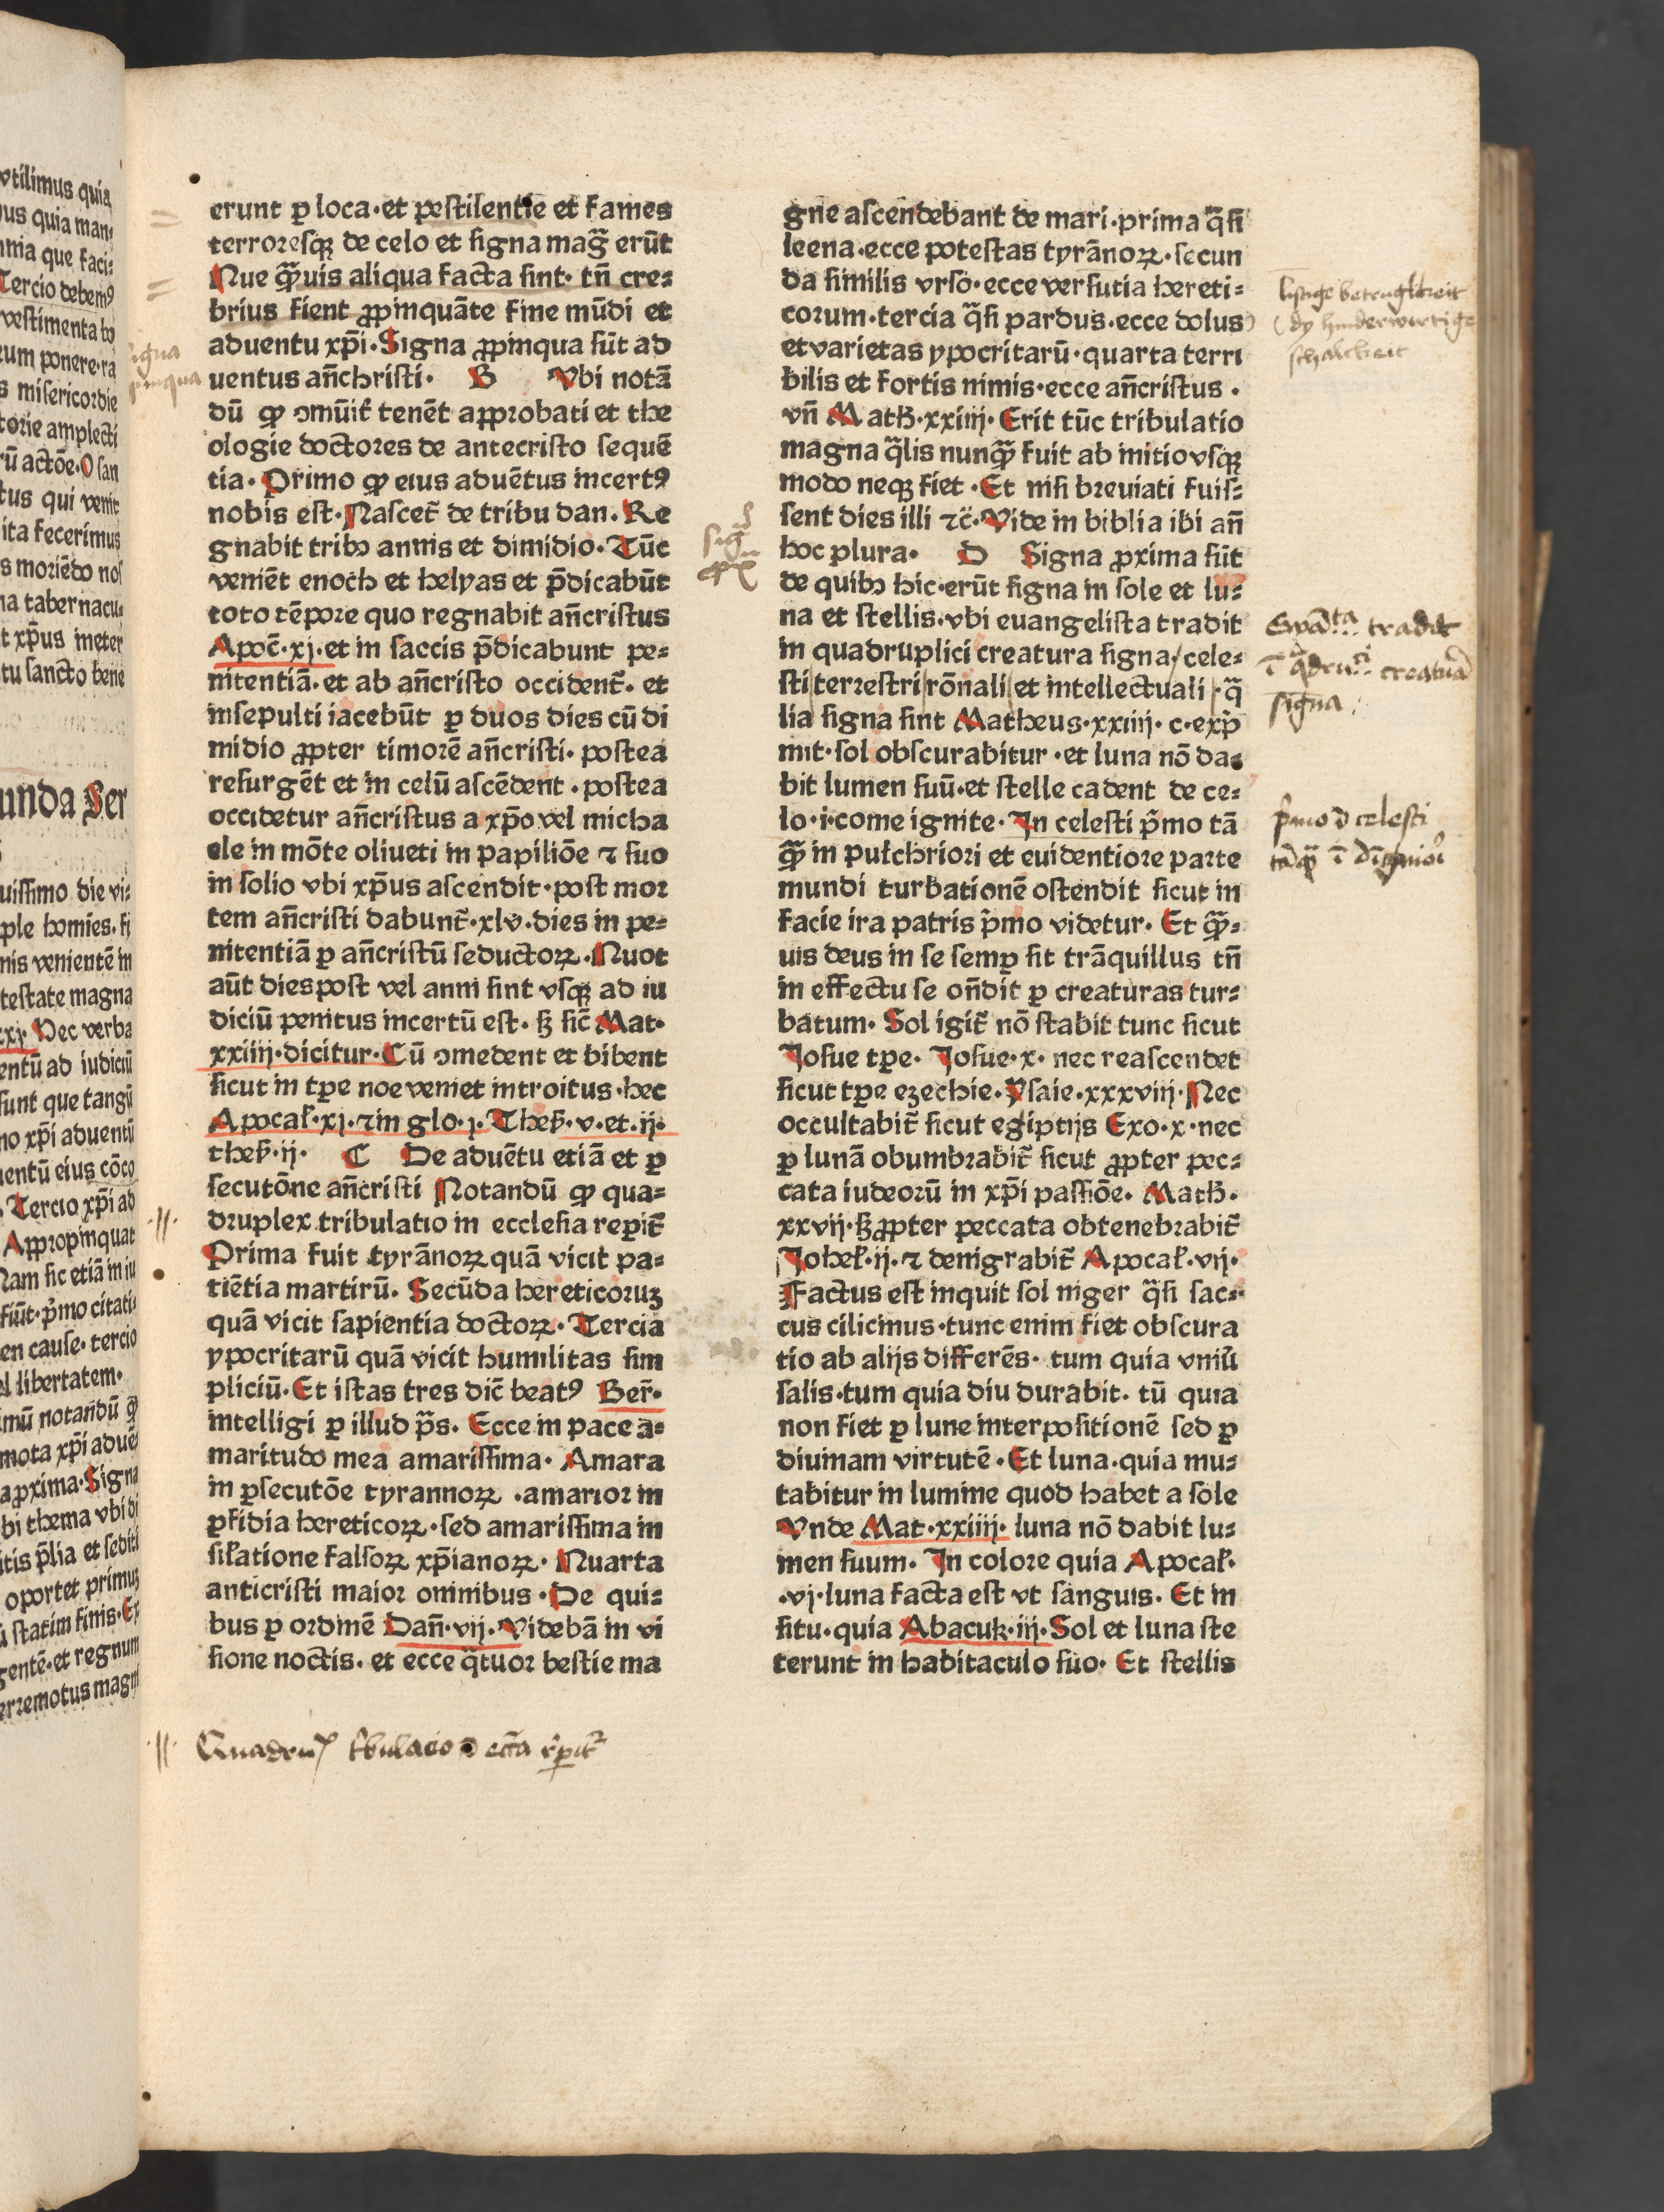 erunt ꝑ loca·et pestilentie et fames
terroresqꝫ de celo et signa mag̃ erūt
Nue q̃uis aliqua facta sint· tñ cre⸗
brius fient ꝓpinquāte fine mūdi et
aduentu xp̄i·Signa ꝓpinqua sūt ad
uentus añchristi· B Vbi notā
dū ꝙ ↄmūit̃ tenēt approbati et the
ologie doctores de antecristo sequē
tia·Primo ꝙ eius aduētus incertꝰ
nobis est·Nascet̃ de tribu dan·Re
gnabit tribꝫ annis et dimidio·Tūc
veniēt enoch et helyas et p̄dicabūt
toto tēpore quo regnabit añcristus
Apoc̃·xj·et in saccis p̄dicabunt pe⸗
nitentiā·et ab añcristo occident̃·et
insepulti iacebūt ꝑ duos dies cū di
midio ꝓpter timorē añcristi·postea
resurgēt et in celū ascēdent·postea
occidetur añcristus a xp̄o vel micha
ele in mōte oliueti in papiliōe ⁊ suo
in solio vbi xp̄us ascendit·post mor
tem añcristi dabunt̃·xlv·dies in pe⸗
nitentiā ꝑ añcristū seductoꝝ·Nuot
aūt dies post vel anni sint vsqꝫ ad iu
diciū penitus incertū est·ꝸ sic̃ Mat·
xxiiij·dicitur·Cū ↄmedent et bibent
sicut in tꝑe noe veniet introitus·hec
Apocal̃·xj·⁊ in glo·j·Thes̃·v·et·ij·
thes̃·ij· C De aduētu etiā et ꝑ
secutōne añcristi Notandū ꝙ qua⸗
druplex tribulatio in ecclesia reꝑit̃
Prima fuit tyrānoꝝ quā vicit pa⸗
tiētia martirū·Secūda hereticoruꝫ
quā vicit sapientia doctoꝝ·Tercia
ypocritarū quā vicit humilitas sim
pliciū·Et istas tres dic̃ beatꝰ Ber̃·
intelligi ꝑ illud p̄s·Ecce in pace a⸗
maritudo mea amarissima·Amara
in ꝑsecutōe tyrannoꝝ·amarior in
ꝑfidia hereticoꝝ·sed amarissima in
sil̃atione falsoꝝ xp̄ianoꝝ·Nuarta
anticristi maior omnibus·De qui⸗
bus ꝑ ordinē Dañ·vij·Videbā in vi
sione noctis·et ecce q̃tuor bestie ma
gne ascendebant de mari·prima q̃si
leena·ecce potestas tyrānoꝝ·secun
da similis vrso·ecce versutia hereti⸗
corum·tercia q̃si pardus·ecce dolus
et varietas ypocritarū·quarta terri
bilis et fortis nimis·ecce añcristus·
vñ Math̃·xxiiij·Erit tūc tribulatio
magna q̃lis nunq̃ fuit ab initio vsqꝫ
modo neqꝫ fiet·Et nisi breuiati fuis⸗
sent dies illi ⁊c̃·Vide in biblia ibi añ
hoc plura· D Signa ꝓxima sūt
de quibꝫ hic·erūt signa in sole et lu⸗
na et stellis·vbi euangelista tradit
in quadruplici creatura signa/cele⸗
sti/terrestri/rōnali/et intellectuali/·q̃
lia signa sint Matheus·xxiiij·c·exp̄
mit·sol obscurabitur·et luna nō da⸗
bit lumen suū·et stelle cadent de ce⸗
lo·i·come ignite·In celesti p̄mo tā
q̃ in pulchriori et euidentiore parte
mundi turbationē ostendit sicut in
facie ira patris p̄mo videtur·Et q̃⸗
uis deus in se semꝑ sit trāquillus tñ
in effectu se oñdit ꝑ creaturas tur⸗
batum·Sol igit̃ nō stabit tunc sicut
Josue tꝑe·Josue·x·nec reascendet
sicut tꝑe ezechie·Ysaie·xxxviij·Nec
occultabit̃ sicut egiptijs Exo·x·nec
ꝑ lunā obumbrabit̃ sicut ꝓpter pec⸗
cata iudeorū in xp̄i passiōe·Math̃·
xxvij·ꝸ ꝓpter peccata obtenebrabit̃
Johel̃·ij·⁊ denigrabit̃ Apocal̃·vij·
Factus est inquit sol niger q̃si sac⸗
cus cilicinus·tunc enim fiet obscura
tio ab alijs differēs·tum quia vniũ
salis·tum quia diu durabit·tū quia
non fiet ꝑ lune interpositionē sed ꝑ
diuinam virtutē·Et luna·quia mu⸗
tabitur in lumine quod habet a sole
Vnde Mat·xxiiij·luna nō dabit lu⸗
men suum·In colore quia Apocal̃·
·vj·luna facta est vt sanguis·Et in
situ·quia Abacuk·iij·Sol et luna ste
terunt in habitaculo suo·Et stellis
listige betrugkheit
(dy hinderwertige
schalckeit
tradit
creatura
signa
p̄mo d celesti